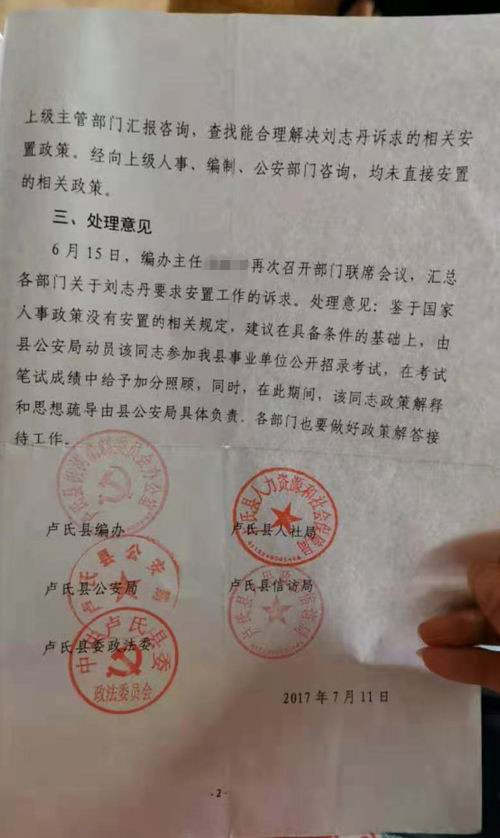 上级主管部门汇报咨询，查找能合理解决刘志丹诉求的相关安
置政策。经向上级人事、编制、公安部门咨询，均未直接安置
的相关政策。
三、处理意见
6月15日，编办主任 再次召开部门联席会议，汇总
各部门关于刘志丹要求安置工作的诉求。处理意见：鉴于国家
人事政策没有安置的相关规定，建议在具备条件的基础上，由
县公安局动员该同志参加我县事业单位公开招录考试，在考试
笔试成绩中给予加分照顾，同时，在此期间，该同志政策解释
和思想疏导由县公安局具体负责.各部门也要做好政策解答接
待工作。
卢氏县编办
卢氏县人力资源和社会保障局
卢氏县人社局
卢氏县公安局
卢氏县公安局
卢氏县信访局
卢氏县信访局
卢氏县委政法委
中共卢氏县委
政法委员会
2017年7月11日
-2-